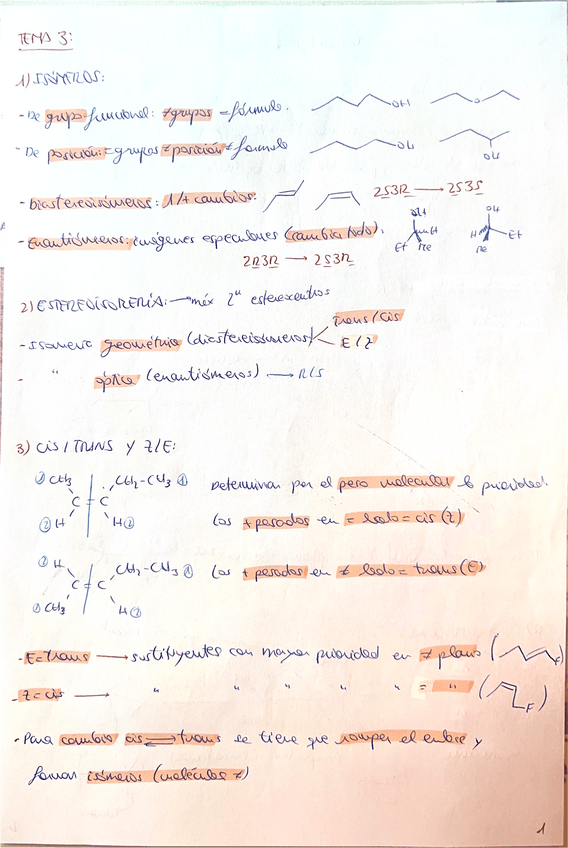 TEMA 3:
1) ISÓMEROS:
- De grupo funcional: ≠ grupos = fórmula. OH O
- De posición: = grupos ≠ posición = fórmula OH OH
- Diastereoisómeros: 1/+ cambios: 2S3R → 2S3S
- Enantiómeros: imágenes especulares (cambia todo). OH H Et Me OH H Et Me
2R3R → 2S3R
2) ESTEREOISOMERÍA: → máx 2ⁿ estereocentros
- Isomería geométrica (diastereisómeros) Trans/Cis
E/Z
- " óptica (enantiómeros) → R/S
3) CIS/TRANS Y Z/E:
① CH3 CH2-CH3 ① Determinar por el peso molecular la prioridad.
C = C
② H H ② Los + pesados en = lado = cis (Z)
② H CH2-CH3 ① Los + pesados en ≠ lado = trans (E)
C = C
① CH3 H ②
- E = Trans → sustituyentes con mayor prioridad en ≠ plano ( F)
- Z = cis → " " " " " = " ( F)
- Para cambio cis ⇌ trans se tiene que romper el enlace y
formar isómeros (moléculas ≠)
1